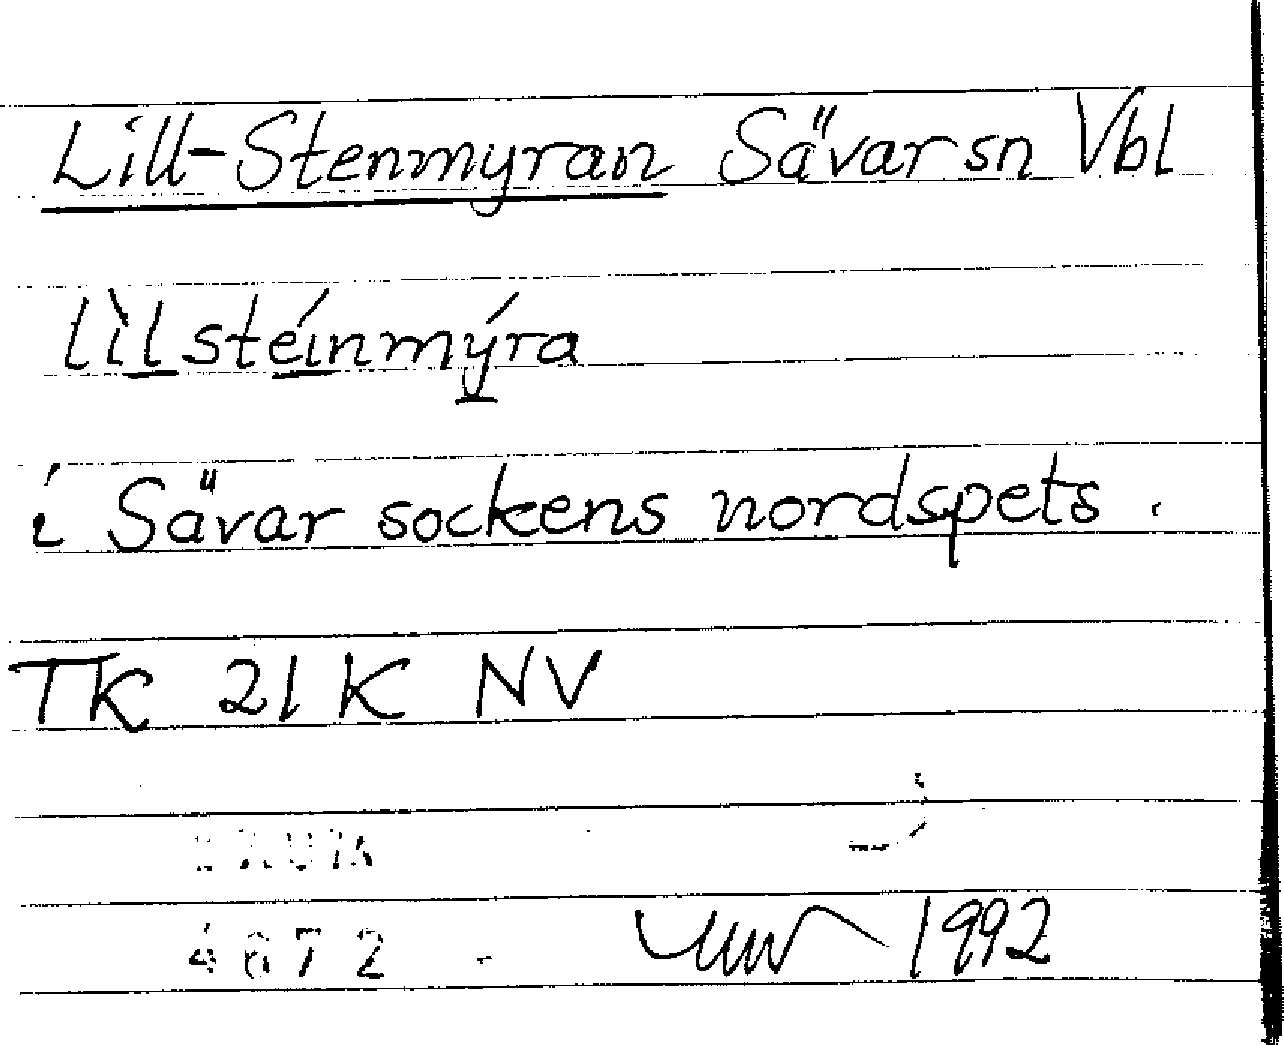 Lill-Stenmyran Sävar sn Vbl
lìlstéinmýra
i Sävar sockens nordspets.
TK 21 K NV
4672
1992